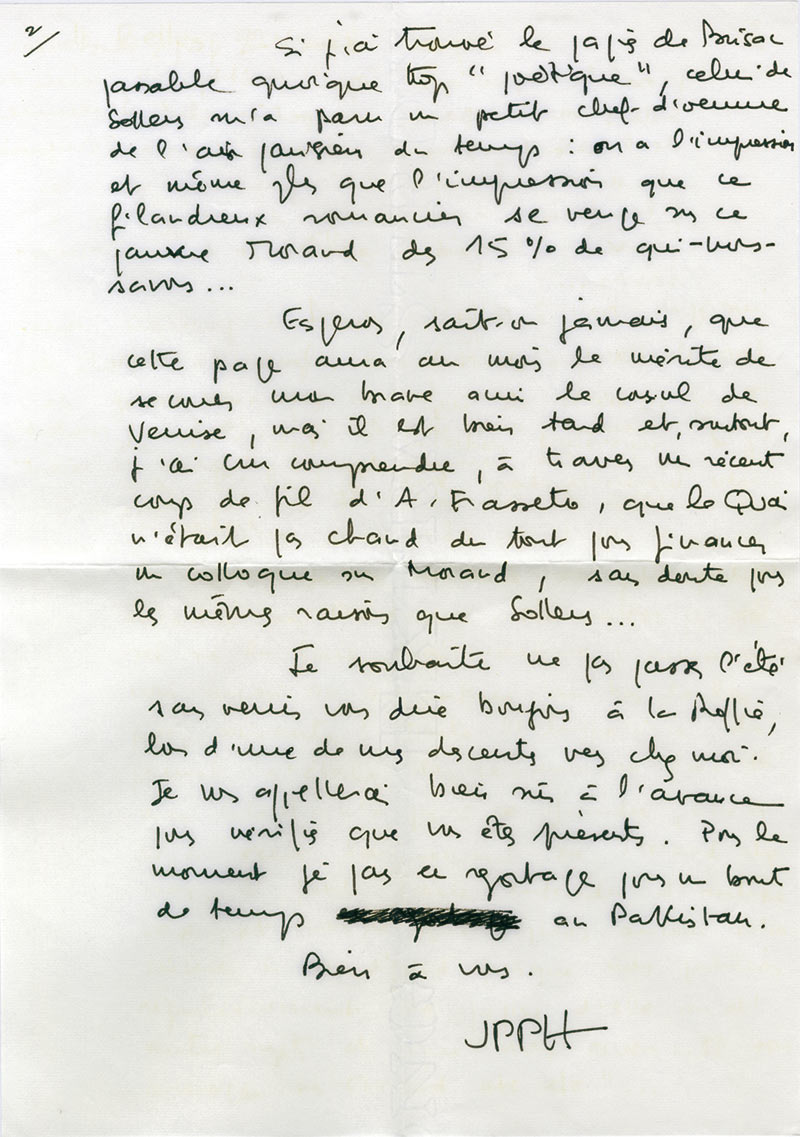 2/
Si j'ai trouvé le papier de Brisac
passable quoique trop "poétique", celui de
Sollers m'a paru un petit chef-d'œuvre
de l'air parisien du temps : on a l'impression
et même plus que l'impression que ce
filandreux romancier se venge sur ce
pauvre Morand des 15 % de qui-vous-
savez...
Espérons, sait-on jamais, que
cette page aura au moins le mérite de
secouer mon brave ami le consul de
Venise, mais il est bien tard et, surtout,
j'ai cru comprendre, à travers un récent
coup de fil d'A. Frasseto, que le Quai
n'était pas chaud du tout pour financer
un colloque sur Morand, sans doute pour
les mêmes raisons que Sollers...
Je souhaite ne pas passer l'été
sans venir vous dire bonjour à la
lors d'une de mes descentes vers chez moi.
Je vous appellerai bien sûr à l'avance
pour vérifier que vous êtes présents. Pour le
moment je pars en reportage pour un bout
de temps au Pakistan.
Bien à vous.
JPPH